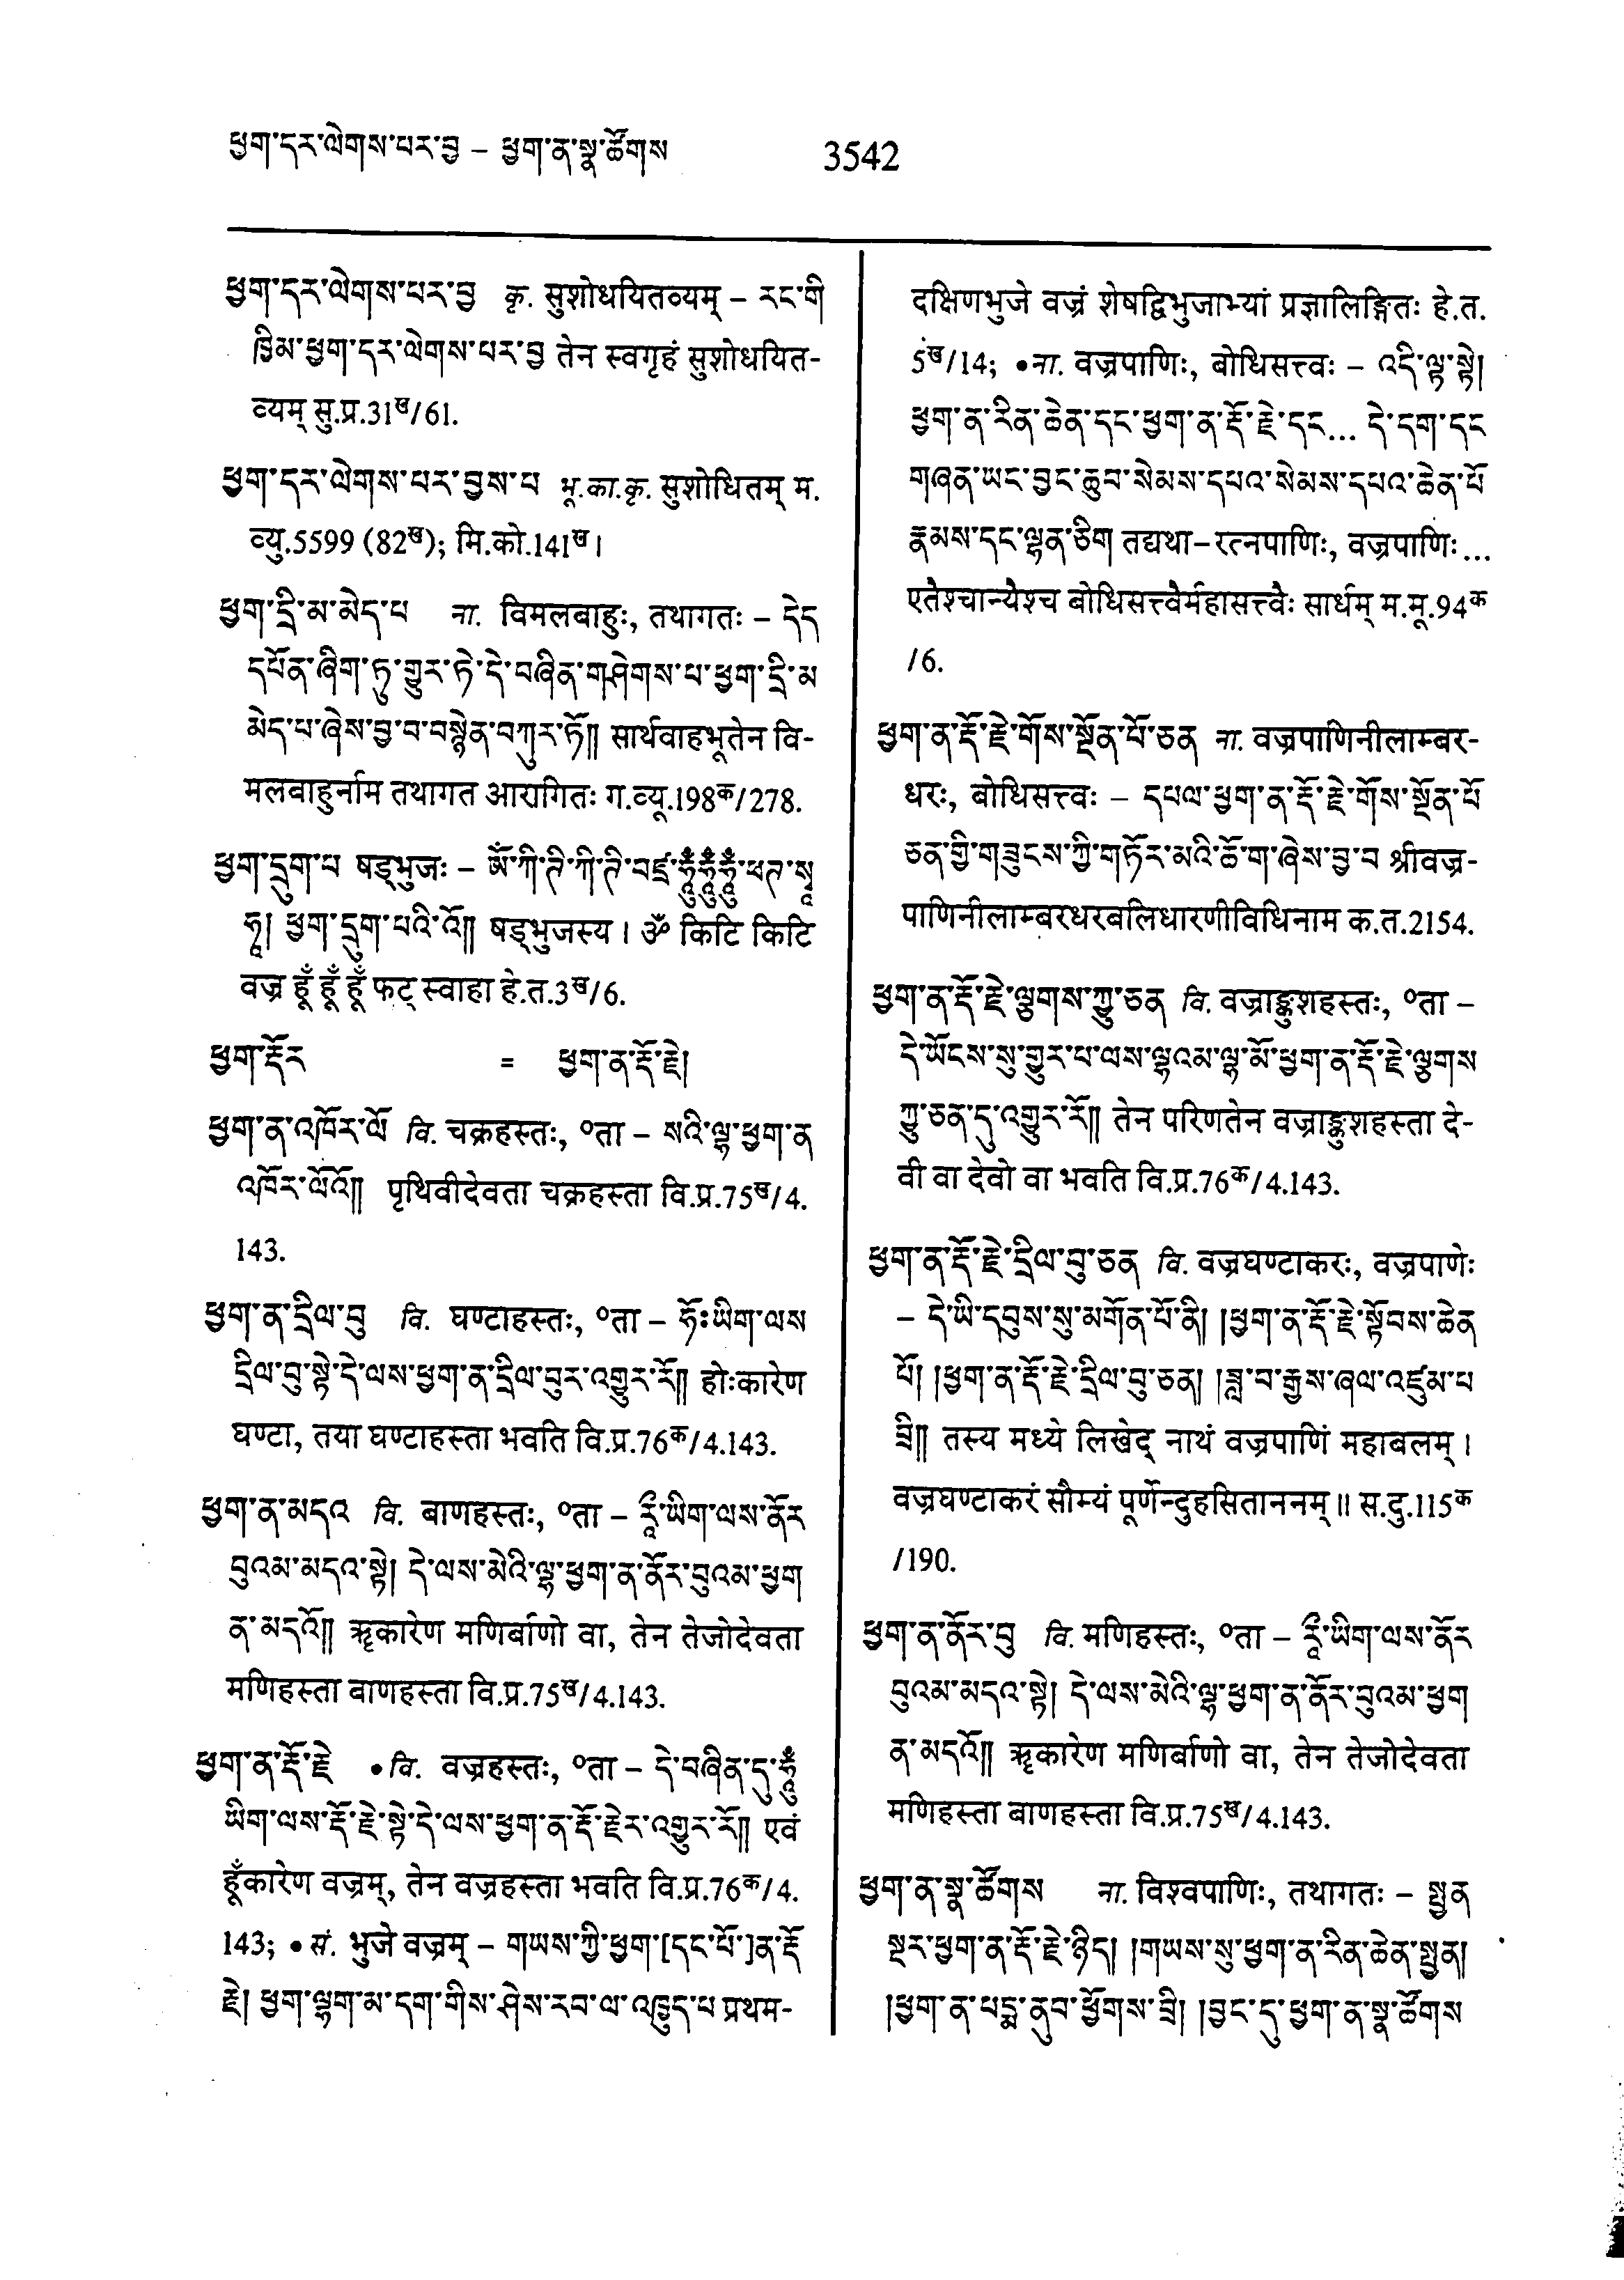 ཕྱག་དར་ལེགས་པར་བྱ – ཕྱག་ན་སྣ་ཚོགས
3542
ཕྱག་དར་ལེགས་པར་བྱ कृ. सुशोधयितव्यम् – རང་གི
ཁྱིམ་ཕྱག་དར་ལེགས་པར་བྱ तेन स्वगृहं सुशोधयित-
व्यम् सु.प्र.31ख/61.
ཕྱག་དར་ལེགས་པར་བྱས་པ भू.का.कृ. सुशोधितम् म.
व्यु.5599 (82ख); मि.को.141ख।
ཕྱག་དྲི་མ་མེད་པ ना. विमलबाहुः, तथागतः – དེད
དཔོན་ཞིག་ཏུ་གྱུར་ཏེ་དེ་བཞིན་གཤེགས་པ་ཕྱག་དྲི་མ
མེད་པ་ཞེས་བྱ་བ་བསྙེན་བཀུར་ཏོ།། सार्थवाहभूतेन वि-
मलबाहुर्नाम तथागत आरागितः ग.व्यू.198क/278.
ཕྱག་དྲུག་པ षड्भुजः – ཨོཾ་ཀི་ཊི་ཀི་ཊི་བཛྲ་ཧཱུྃ་ཧཱུྃ་ཧཱུྃ་ཕཊ་སྭཱ
ཧཱ། ཕྱག་དྲུག་པའི་འོ།། षड्भुजस्य । ॐ किटि किटि
वज्र हूँ हूँ हूँ फट् स्वाहा हे.त.3ख/6.
ཕྱག་རྡོར = ཕྱག་ན་རྡོ་རྗེ།
ཕྱག་ན་འཁོར་ལོ वि. चक्रहस्तः, ०ता – སའི་ལྷ་ཕྱག་ན
འཁོར་ལོའོ།། पृथिवीदेवता चक्रहस्ता वि.प्र.75ख/4.
143.
ཕྱག་ན་དྲིལ་བུ वि. घण्टाहस्तः, ०ता – ཧོཿཡིག་ལས
དྲིལ་བུ་སྟེ་དེ་ལས་ཕྱག་ན་དྲིལ་བུར་འགྱུར་རོ།། होःकारेण
घण्टा, तया घण्टाहस्ता भवति वि.प्र.76क/4.143.
ཕྱག་ན་མདའ वि. बाणहस्तः, ०ता – རཱྀ་ཡིག་ལས་ནོར
བུའམ་མདའ་སྟེ། དེ་ལས་མེའི་ལྷ་ཕྱག་ན་ནོར་བུའམ་ཕྱག
ན་མདའོ།། ॠकारेण मणिर्बाणो वा, तेन तेजोदेवता
मणिहस्ता बाणहस्ता वि.प्र.75ख/4.143.
ཕྱག་ན་རྡོ་རྗེ • वि. वज्रहस्तः, ०ता – དེ་བཞིན་དུ་ཧཱུྃ
ཡིག་ལས་རྡོ་རྗེ་སྟེ་དེ་ལས་ཕྱག་ན་རྡོ་རྗེར་འགྱུར་རོ།། एवं
हूँकारेण वज्रम्, तेन वज्रहस्ता भवति वि.प्र.76क/4.
143; • सं. भुजे वज्रम् – གཡས་ཀྱི་ཕྱག་[དང་པོ་]ན་རྡོ
རྗེ། ཕྱག་ལྷག་མ་དག་གིས་ཤེས་རབ་ལ་འཁྱུད་པ प्रथम-
दक्षिणभुजे वज्रं शेषद्विभुजाभ्यां प्रज्ञालिङ्गितः हे.त.
5ख/14; • ना. वज्रपाणिः, बोधिसत्त्वः – འདི་ལྟ་སྟེ།
ཕྱག་ན་རིན་ཆེན་དང་ཕྱག་ན་རྡོ་རྗེ་དང... དེ་དག་དང
གཞན་ཡང་བྱང་ཆུབ་སེམས་དཔའ་སེམས་དཔའ་ཆེན་པོ
རྣམས་དང་ལྷན་ཅིག तद्यथा–रत्नपाणिः, वज्रपाणिः...
एतैश्चान्यैश्च बोधिसत्त्वैर्महासत्त्वैः सार्धम् म.मू.94क
/6.
ཕྱག་ན་རྡོ་རྗེ་གོས་སྔོན་པོ་ཅན ना. वज्रपाणिनीलाम्बर-
धरः, बोधिसत्त्वः – དཔལ་ཕྱག་ན་རྡོ་རྗེ་གོས་སྔོན་པོ
ཅན་གྱི་གཟུངས་ཀྱི་གཏོར་མའི་ཆོ་ག་ཞེས་བྱ་བ श्रीवज्र-
पाणिनीलाम्बरधरबलिधारणीविधिनाम क.त.2154.
ཕྱག་ན་རྡོ་རྗེ་ལྕགས་ཀྱུ་ཅན वि. वज्राङ्कुशहस्तः, ०ता –
དེ་ཡོངས་སུ་གྱུར་པ་ལས་ལྷའམ་ལྷ་མོ་ཕྱག་ན་རྡོ་རྗེ་ལྕགས
ཀྱུ་ཅན་དུ་འགྱུར་རོ།། तेन परिणतेन वज्राङ्कुशहस्ता दे-
वी वा देवो वा भवति वि.प्र.76क/4.143.
ཕྱག་ན་རྡོ་རྗེ་དྲིལ་བུ་ཅན वि. वज्रघण्टाकरः, वज्रपाणेः
– དེ་ཡི་དབུས་སུ་མགོན་པོ་ནི། །ཕྱག་ན་རྡོ་རྗེ་སྟོབས་ཆེན
པོ། །ཕྱག་ན་རྡོ་རྗེ་དྲིལ་བུ་ཅན། །ཟླ་བ་རྒྱས་ཞལ་འཛུམ་པ
བྲི།། तस्य मध्ये लिखेद् नाथं वज्रपाणिं महाबलम् ।
वज्रघण्टाकरं सौम्यं पूर्णेन्दुहसिताननम् ॥ स.दु.115क
/190.
ཕྱག་ན་ནོར་བུ वि. मणिहस्तः, ०ता – རཱྀ་ཡིག་ལས་ནོར
བུའམ་མདའ་སྟེ། དེ་ལས་མེའི་ལྷ་ཕྱག་ན་ནོར་བུའམ་ཕྱག
ན་མདའོ།། ॠकारेण मणिर्बाणो वा, तेन तेजोदेवता
मणिहस्ता बाणहस्ता वि.प्र.75ख/4.143.
ཕྱག་ན་སྣ་ཚོགས ना. विश्वपाणिः, तथागतः – སྤྱན
སྔར་ཕྱག་ན་རྡོ་རྗེ་ཉིད། །གཡས་སུ་ཕྱག་ན་རིན་ཆེན་སྤྱན།
།ཕྱག་ན་པདྨ་ནུབ་ཕྱོགས་བྲི། །བྱང་དུ་ཕྱག་ན་སྣ་ཚོགས